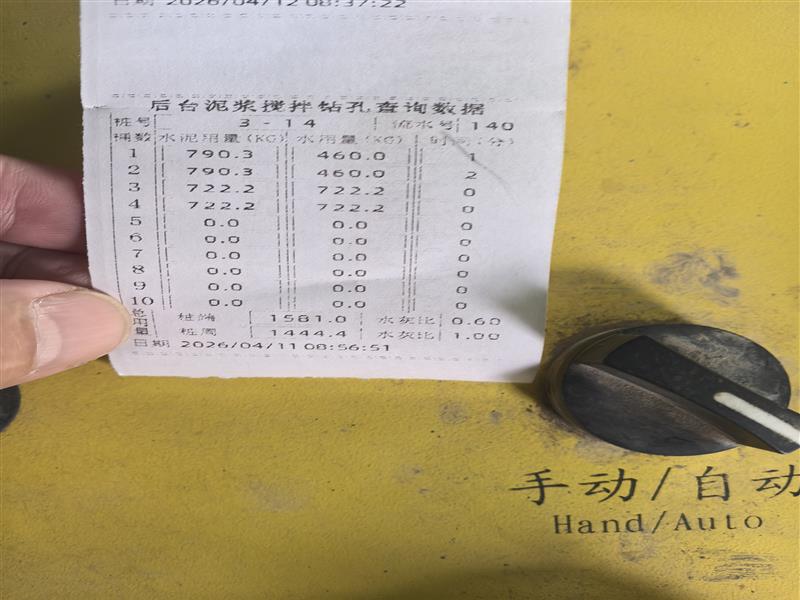 日期 2026/04/12 08:37:22
后台泥浆搅拌钻孔查询数据
桩号 3-14 流水号 140
桶数 水泥用量(KG) 水用量(KG) 时间(分)
1 790.3 460.0 1
2 790.3 460.0 2
3 722.2 722.2 0
4 722.2 722.2 0
5 0.0 0.0 0
6 0.0 0.0 0
7 0.0 0.0 0
8 0.0 0.0 0
9 0.0 0.0 0
10 0.0 0.0 0
总用量 桩端 1581.0 水灰比 0.60
桩周 1444.4 水灰比 1.00
日期 2026/04/11 08:56:51
手动/自动
Hand/Auto